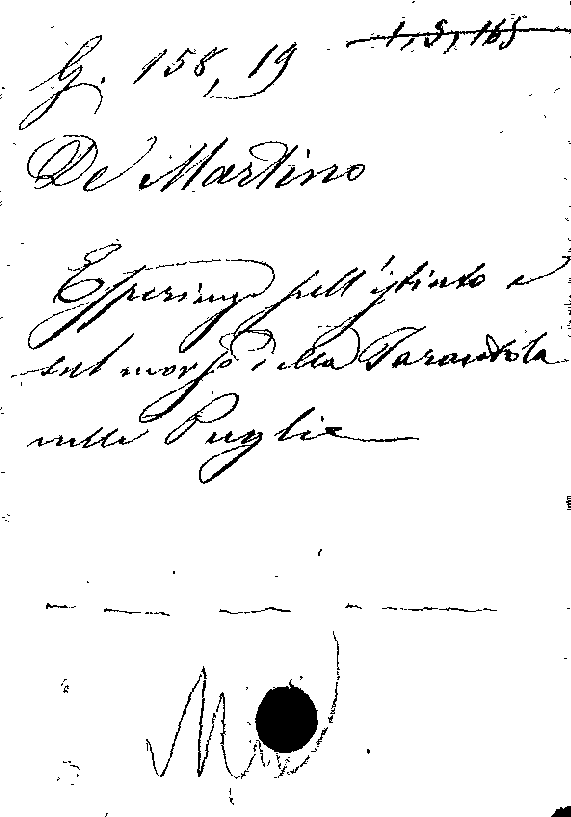 G. 158, 19
1, 5, 165
De Martino
Esperinze sull'istinto e
sul morso della Tarantola
nelle Puglie